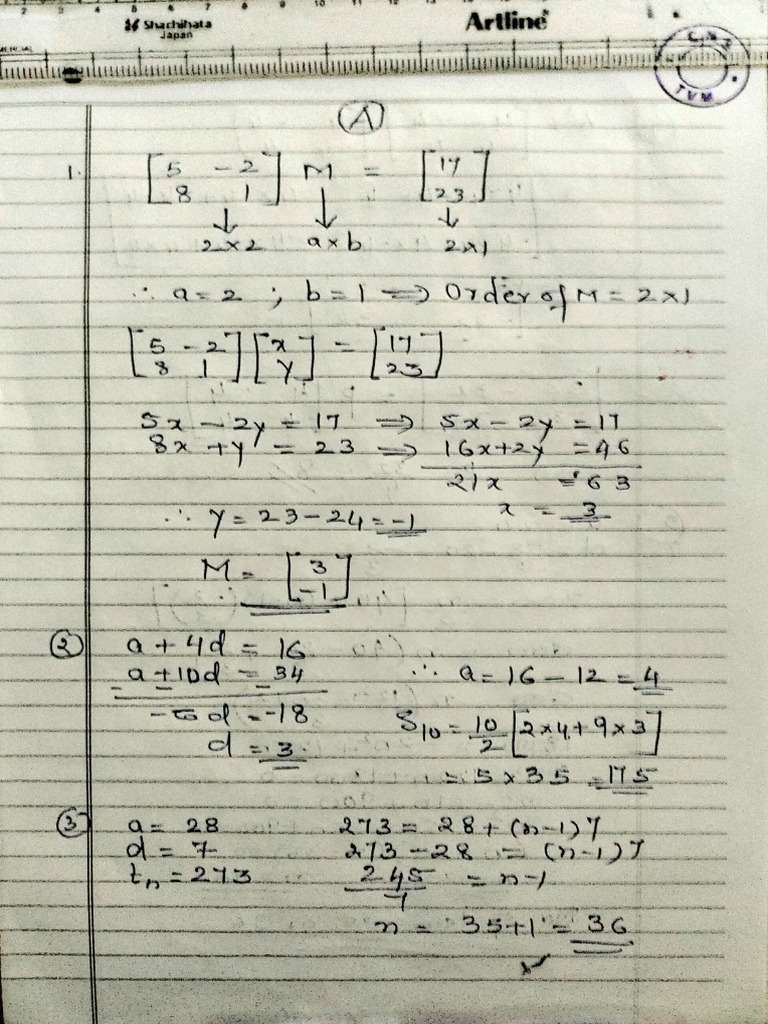 Shachihata
Japan
Artline
TVM
A
1. [5 -2; 8 1] M = [17; 23]
2×2 a×b 2×1
∴ a=2 ; b=1 ⟹ Order of M = 2×1
[5 -2; 8 1] [x; y] = [17; 23]
5x - 2y = 17 ⟹ 5x - 2y = 17
8x + y = 23 ⟹ 16x + 2y = 46
21x = 63
x = 3
∴ y = 23 - 24 = -1
M = [3; -1]
2 a + 4d = 16
a + 10d = 34 ∴ a = 16 - 12 = 4
-6d = -18 S10 = 10/2 [2×4 + 9×3]
d = 3
= 5 × 35 = 175
3 a = 28 273 = 28 + (n-1) 7
d = 7 273 - 28 = (n-1) 7
tn = 273 245/7 = n-1
n = 35+1 = 36